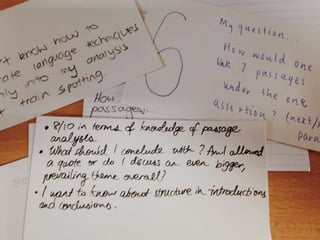 't know how to
ate language techniques
ly into my analysis
t train spotting.
My question...
How would one
link 2 passages
under the one
assertion? (next/
para
How
passages...
• 8/10 in terms of knowledge of passage
analysis.
• What should I conclude with? Am I allowed
a quote or do I discuss an even bigger,
prevailing theme overall?
• I want to know about structure in introductions
and conclusions.